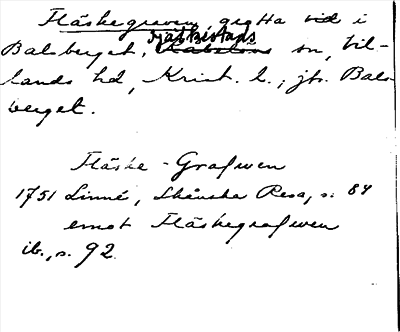 Fläskegraven grotta vid i
Balsberget, Fjälkestads sn, Vil-
lands hd, Krist. l.; jfr. Bals-
berget.
Fläske-Grafwen
1751 Linné, Skånska Resa, s. 84
emot Fläskegrafwen
ib., s. 92.